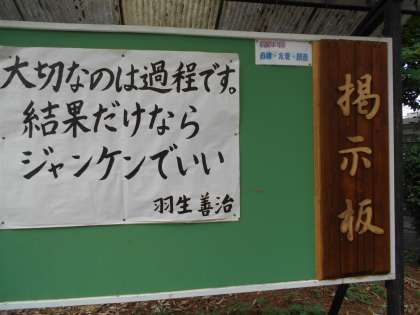 大切なのは過程です。
結果だけなら
ジャンケンでいい
羽生善治
掲示板